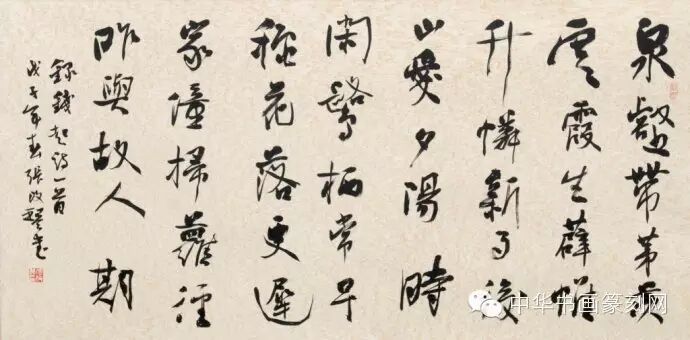 泉壑帶茅茨
雲霞生薜帷
竹憐新雨後
山愛夕陽時
閑鷺栖常早
秋花落更遲
家僮掃蘿徑
昨與故人期
錄錢起詩一首
戊子年春張改琴書
中华书画篆刻网